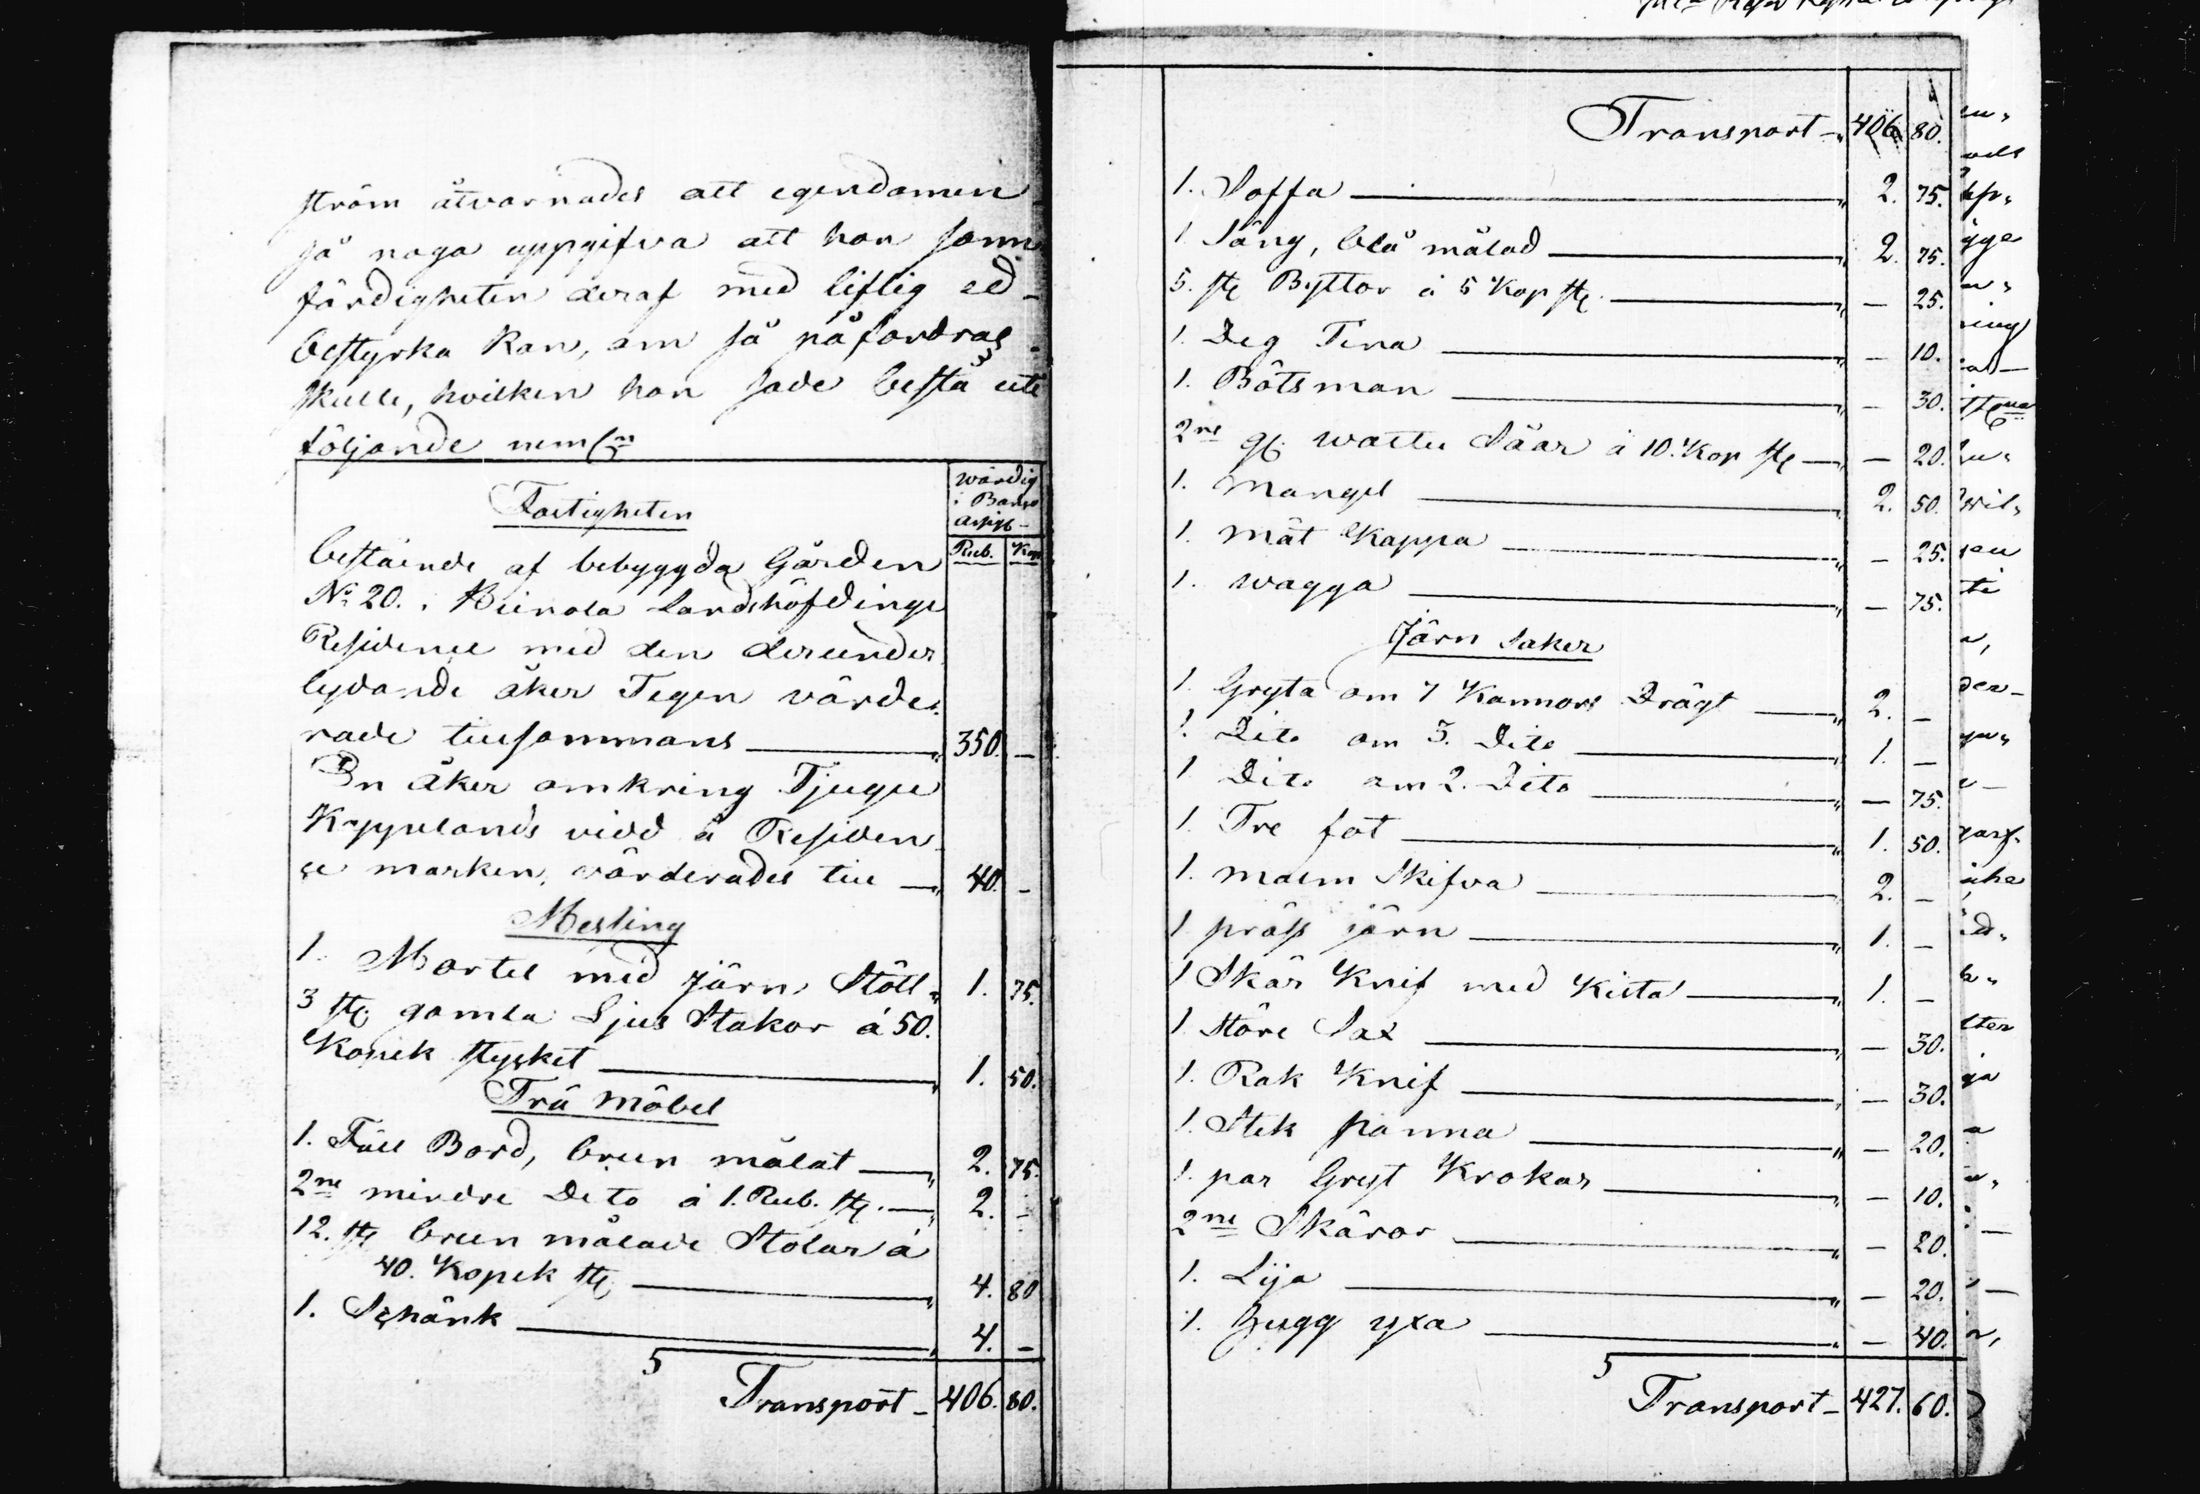 ström åtvarnades att egendomen
så noga uppgifva att han sann
färdigheten deraf med liflig ed
bestyrka kan, om så påfordras
skulle, hvilken han sade bestå uti
följande neml:n
wärdig
i Banco
Assig:
Fastigheten
Rub. Kop
bestående af bebyggda Gården
No 20. i Kuinola Landshöfdinge
Residence med den derunder
lydande åker Tegen värde-
rade tillsammans 350. —
En åker omkring Tjugu
Kappelands vidd å Residen
ce marken, värderades till — 40. —
Messing
1. Mortel med Järn Stött 1. 75.
3 st. gamla Ljus Stakar á 50.
Kopek stycket 1. 50.
Trä Möbel
1. Fäll Bord, brun målat 2. 75.
2ne mindre Dito á 1. Rub. st. 2. —
12. st brun målade Stolar á
40. Kopek st. 4. 80
1. Schänk 4. —
5
Transport 406. 80.
Transport 406 80.
1. Soffa 2. 75.
1 Säng, blå målad 2. 75.
5. st Byttor á 5 Kop st. — 25.
1. Deg Tina — 10.
1. Båtsman — 30.
2ne gl. watten Såar á 10. Kop st — 20.
1. Mangel 2. 50.
1. Mät Kappa — 25.
1. wagga — 75.
Järn Saker
1. Gryta om 7 Kannors Drägt 2. —
1. Dito om 3. Dito 1. —
1 Dito om 2. Dito — 75.
1. Tre fot 1. 50.
1. Malm Skifva 2. —
1 präss järn 1. —
1 Skär Knif med Kista 1. —
1. Störe Sax — 30.
1. Rak Knif — 30.
1. Stek panna — 20.
1. par Gryt Krokar — 10.
2ne Skäror — 20.
1. Lija — 20.
1. Hugg yxa — 40.
5
Transport 427. 60.